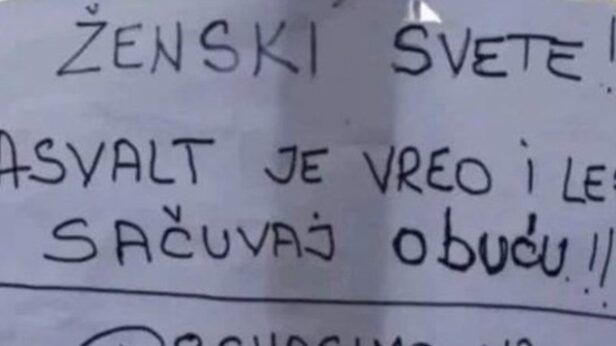 ŽENSKI SVETE!!
ASVALT JE VREO i
SAČUVAJ obuću!!